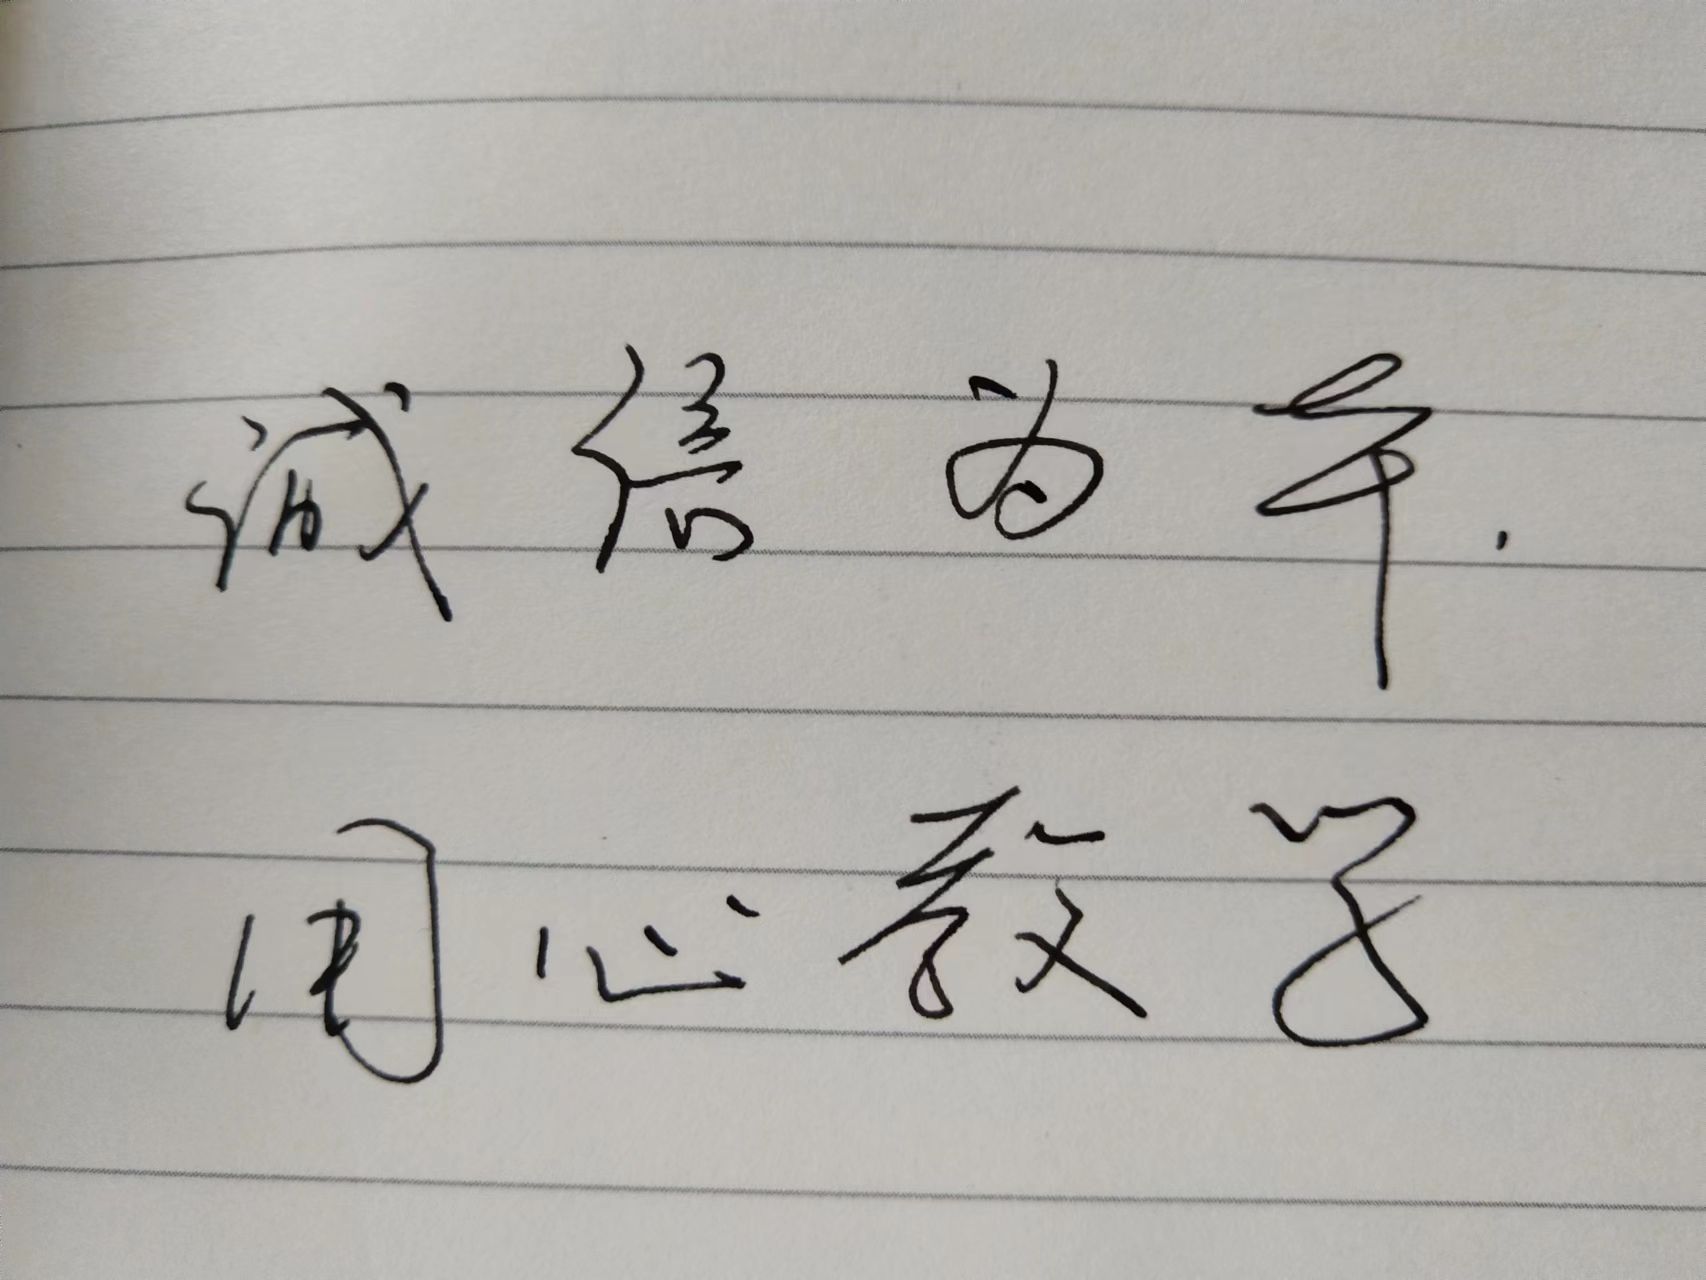 诚信为本.
用心教学